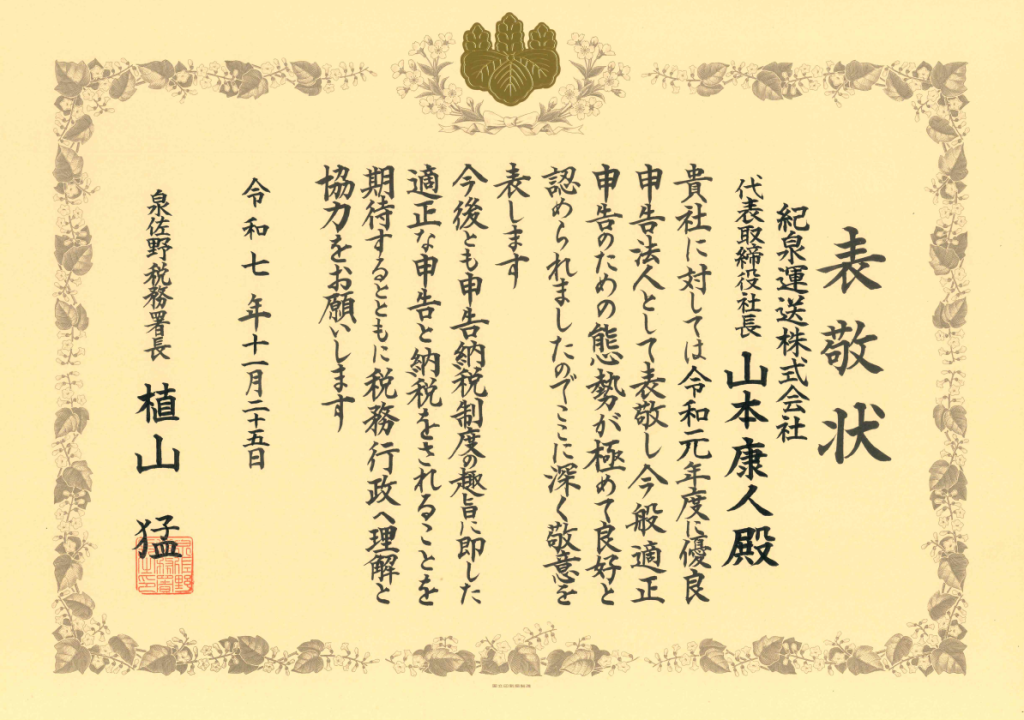 表敬状
紀泉運送株式会社
代表取締役社長 山本康人殿
貴社に対しては令和元年度に優良
申告法人として表敬し今般適正
申告のための態勢が極めて良好と
認められましたのでここに深く敬意を
表します
今後とも申告納税制度の趣旨に即した
適正な申告と納税をされることを
期待するとともに税務行政へ理解と
協力をお願いします
令和七年十一月二十五日
泉佐野税務署長 植山 猛